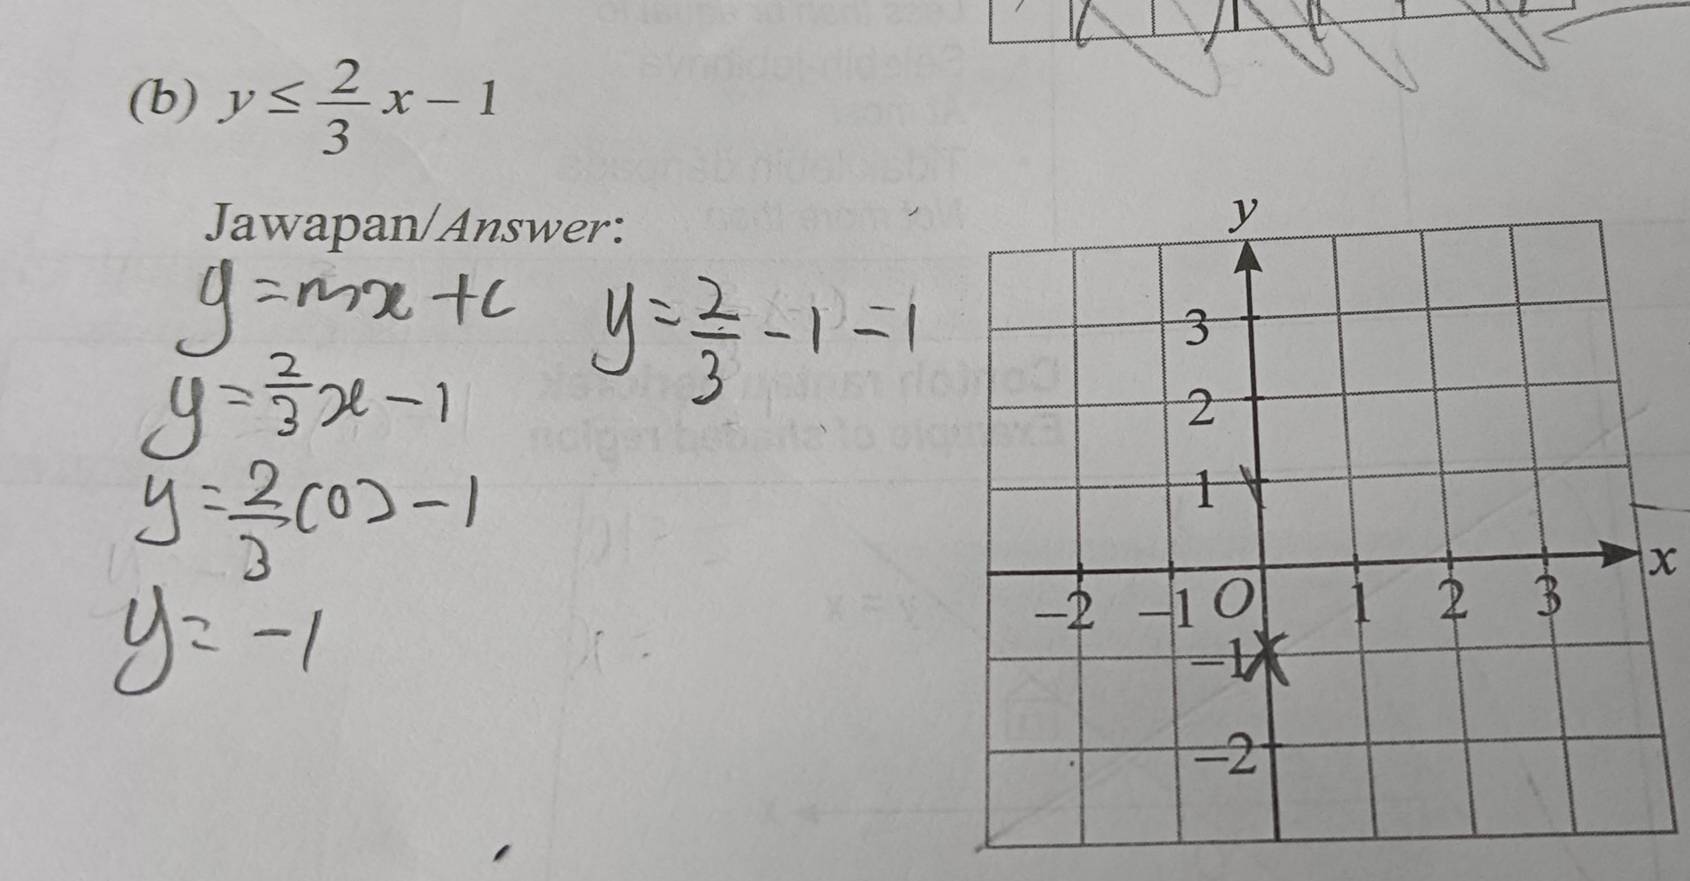 (b) y ≤ 2/3 x – 1
Jawapan/Answer:
y = mx + c
y = 2/3 x – 1
y = 2/3 (0) – 1
y = –1
y = 2/3 – 1 = 1
y
3
2
1
–2 –1 O 1 2 3 x
–1
–2